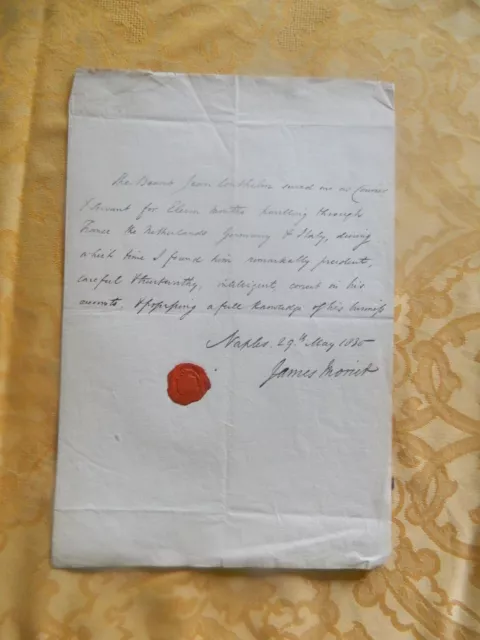 The Bearer Jean Wilhelm served me as Courier
& Servant for Eleven months travelling through
France the Netherlands Germany & Italy, during
which time I found him remarkably prudent,
careful & trustworthy, intelligent, correct in his
accounts, & possessing a full knowledge of his business
Naples, 29th May 18
James Morier